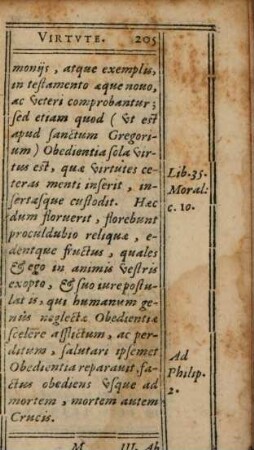 VIRTVTE. 205
monijs, atque exemplu,
in testamento æque nouo,
ac veteri comprobantur;
sed etiam quod (vt est
apud sanctum Gregori-
um) Obedientia sola vir-
tus est, quæ virtutes ce-
teras menti inserit, in-
sertasque custodit. Hæc
dum floruerit, florebunt
proculdubio reliquæ, e-
dentque fructus, quales
& ego in animis vestris
exopto, & suo iure postu-
lat is, qui humanum ge-
nus neglectæ Obedientiæ
scelere afflictum, ac per-
ditum, salutari ipsemet
Obedientia reparauit. fa-
ctus obediens vsque ad
mortem, mortem autem
Crucis.
M III. Ab
Lib. 35.
Moral:
c. 10.
Ad
Philip.
2.